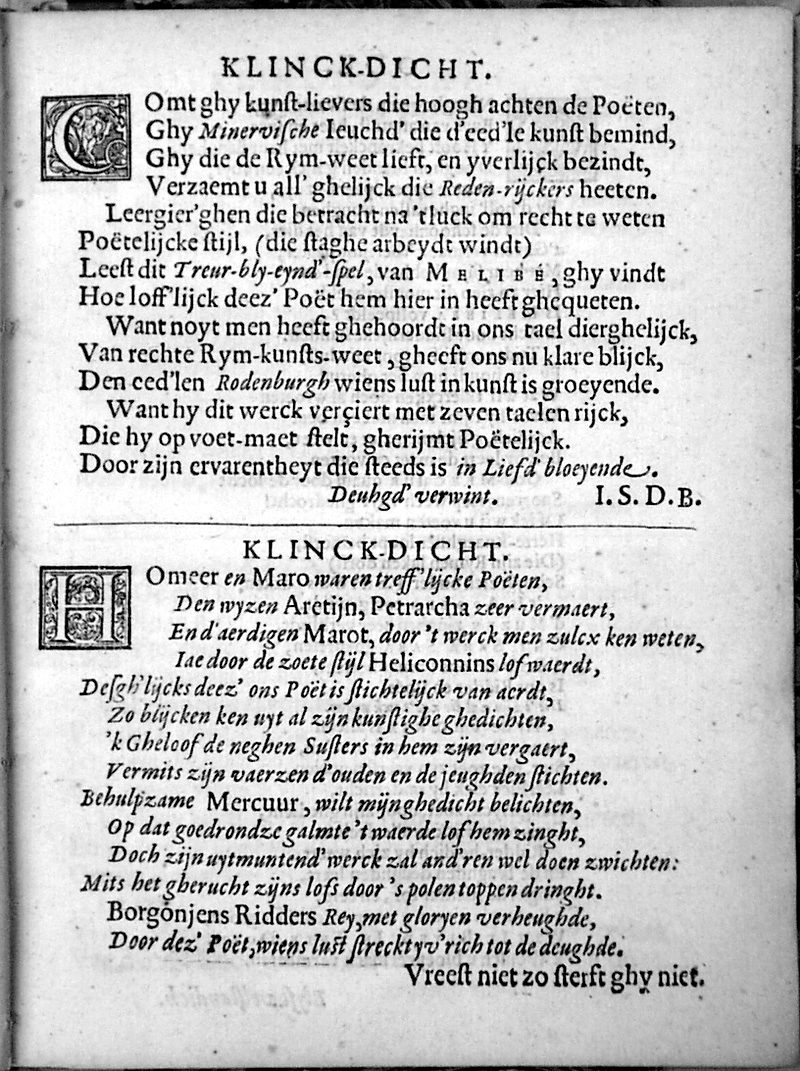 KLINCK-DICHT.
COmt ghy kunſt-lievers die hoogh achten de Poëten,
Ghy Minerviſche Ieuchd' die d'eed'le kunſt bemind,
Ghy die de Rym-weet lieft, en yverlijck bezindt,
Verzaemt u all' ghelijck die Reden-rijckers heeten.
Leergier'ghen die betracht na 'tluck om recht te weten
Poëtelijcke ſtijl, (die ſtaghe arbeydt windt)
Leeſt dit Treur-bly-eynd'-ſpel, van MELIBÉ, ghy vindt
Hoe loff'lijck deez' Poët hem hier in heeft ghequeten.
Want noyt men heeft ghehoordt in ons tael dierghelijck,
Van rechte Rym-kunſts-weet, gheeft ons nu klare blijck,
Den eed'len Rodenburgh wiens luſt in kunſt is groeyende.
Want hy dit werck verçiert met zeven taelen rijck,
Die hy op voet-maet ſtelt, gherijmt Poëtelijck.
Door zijn ervarentheyt die ſteeds is in Liefd' bloeyende.
Deuhgd' verwint. I.S.D.B.
KLINCK-DICHT.
HOmeer en Maro waren treff'lijcke Poëten,
Den wyzen Aretijn, Petrarcha zeer vermaert,
En d'aerdigen Marot, door 't werck men zulcx ken weten,
Iae door de zoete ſtijl Heliconnins lof waerdt,
Deſgh'lijcks deez' ons Poët is ſtichtelijck van aerdt,
Zo blijcken ken uyt al zijn kunſtighe ghedichten,
'k Gheloof de neghen Suſters in hem zijn vergaert,
Vermits zijn vaerzen d'ouden en de jeughden ſtichten.
Behulpzame Mercuur, wilt mijn ghedicht belichten,
Op dat goedrondze galmte 't waerde lof hem zinght,
Doch zijn uytmuntend' werck zal and'ren wel doen zwichten:
Mits het gherucht zijns lofs door 's polen toppen dringht.
Borgonjens Ridders Rey, met gloryen verheughde,
Door dez' Poët, wiens luſt ſtreckt yv'rich tot de deughde.
Vreeſt niet zo ſterft ghy niet.